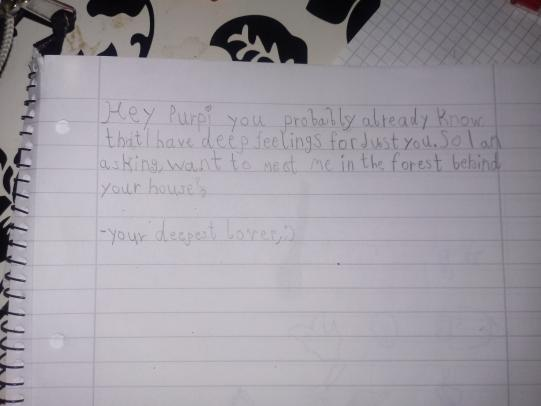 Hey Purpi you probaibly already know
that I have deep feelings for Just you. So I am
asking, want to meet me in the forest behind
your house?
-your deepest Lover,:)